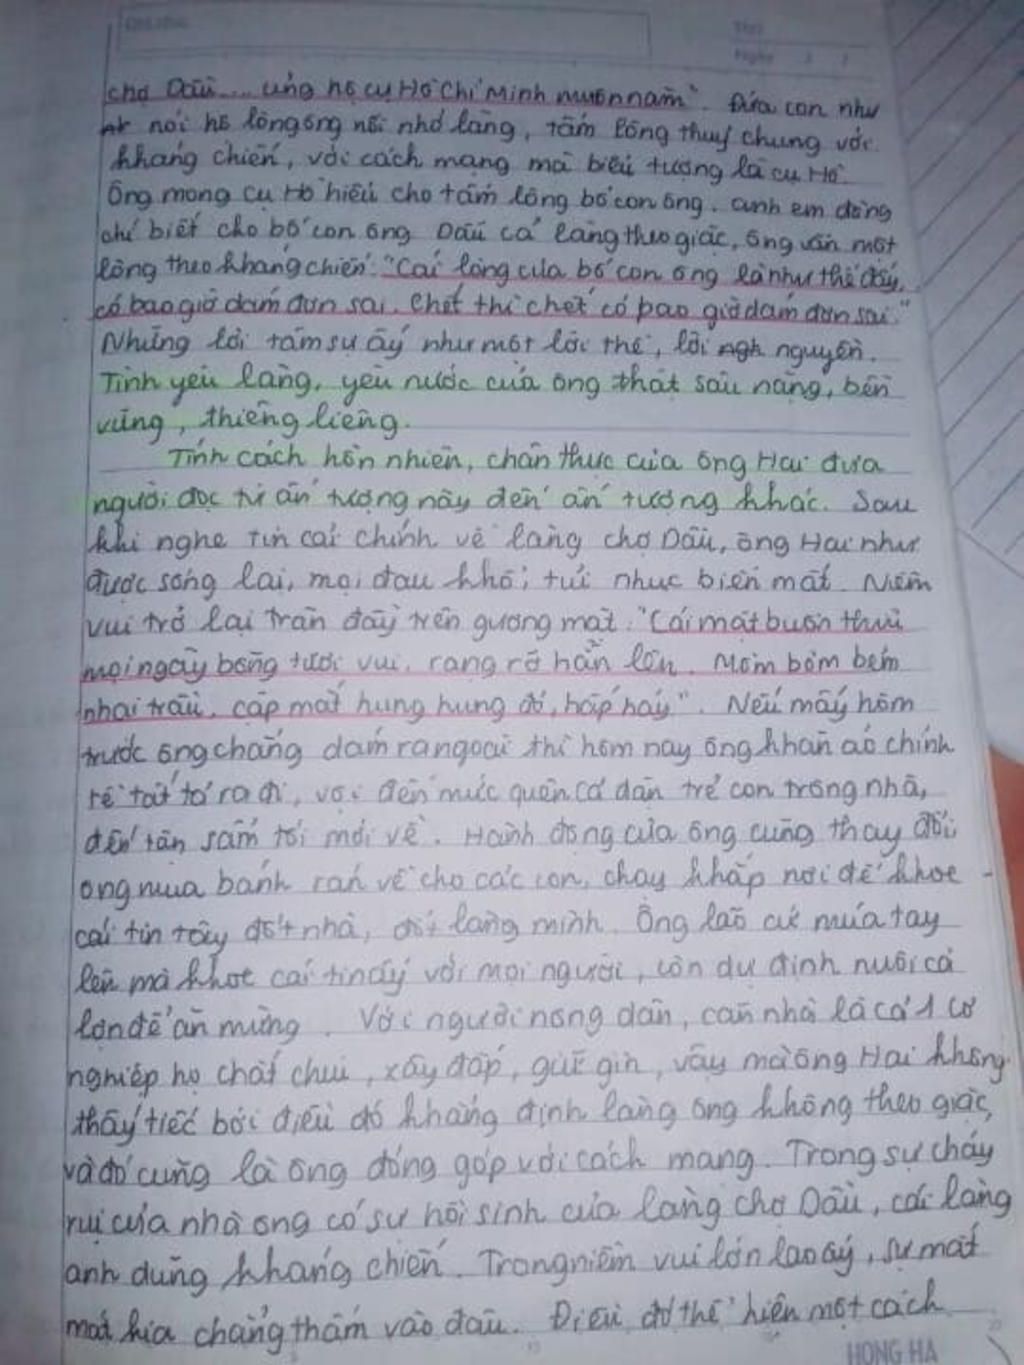 Thứ
Ngày
chợ Dầu... ủng hộ cụ Hồ Chí Minh muôn năm". Đứa con như
nói hộ lòng ông nỗi nhớ làng, tấm lòng thuỷ chung với
kháng chiến, với cách mạng mà biểu tượng là cụ Hồ.
Ông mong cụ Hồ hiểu cho tấm lòng bố con ông. anh em đồng
chí biết cho bố con ông Dẫu cả làng theo giặc, ông vẫn một
lòng theo kháng chiến: "Cái lòng của bố con ông là như thế đấy,
có bao giờ dám đơn sai. Chết thì chết có bao giờ dám đơn sai."
Những lời tâm sự ấy như một lời thề, lời ngh nguyền.
Tình yêu làng, yêu nước của ông thật sâu nặng, bền
vững, thiêng liêng.
Tính cách hồn nhiên, chân thực của ông Hai đưa
người đọc từ ấn tượng này đến ấn tượng khác. Sau
khi nghe tin cải chính về làng chợ Dầu, ông Hai như
được sống lại, mọi đau khổ, tủi nhục biến mất. Niềm
vui trở lại tràn đầy trên gương mặt: "Cái mặt buồn thiu
mọi ngày bỗng tươi vui, rạng rỡ hẳn lên. Mồm bỏm bẻm
nhai trầu, cặp mắt hung hung đỏ, hấp háy". Nếu mấy hôm
trước ông chẳng dám ra ngoài thì hôm nay ông khăn áo chỉnh
tề tất tả ra đi, vội đến mức quên cả dặn trẻ con trông nhà,
đến tận sẩm tối mới về. Hành động của ông cũng thay đổi,
ông mua bánh rán về cho các con, chạy khắp nơi để khoe
cái tin tây đốt nhà, đốt làng mình. Ông lão cứ múa tay
lên mà khoe cái tin ấy với mọi người, còn dự định nuôi cả
lợn để ăn mừng. Với người nông dân, căn nhà là cả 1 cơ
nghiệp họ chắt chiu, xây đắp, giữ gìn, vậy mà ông Hai không
thấy tiếc bởi điều đó khẳng định làng ông không theo giặc,
và đó cũng là ông đóng góp với cách mạng. Trong sự cháy
rụi của nhà ông có sự hồi sinh của làng chợ Dầu, cái làng
anh dũng kháng chiến. Trong niềm vui lớn lao ấy, sự mất
mát kia chẳng thấm vào đâu. Điều đó thể hiện một cách
HONG HA